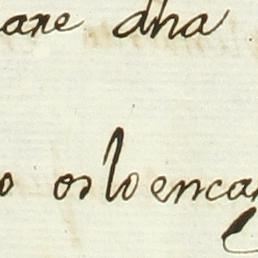 are dha
o os lo encar